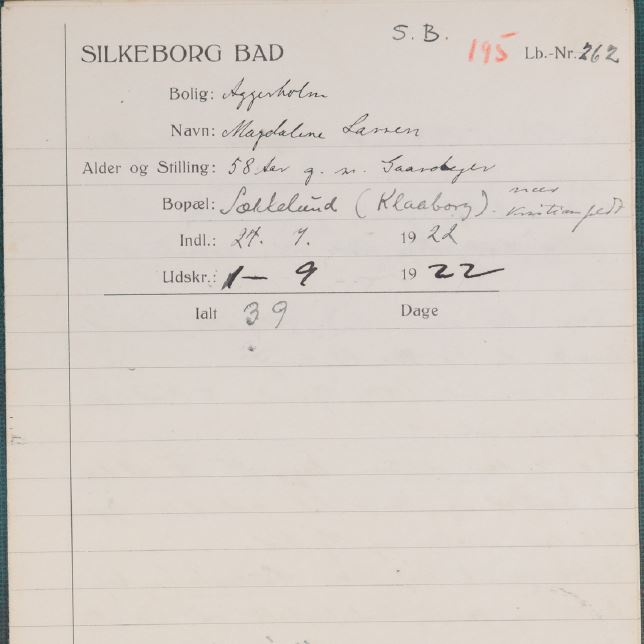 S. B.
SILKEBORG BAD 195 Lb.-Nr. 262
Bolig: Aggerholm
Navn: Magdalene Larsen
Alder og Stilling: 58 Aar g. m. Gaardejer
Bopæl: (Klaaborg). nær
Indl.: 24. 7. 1922
Udskr.: 1 – 9 1922
Ialt 39 Dage